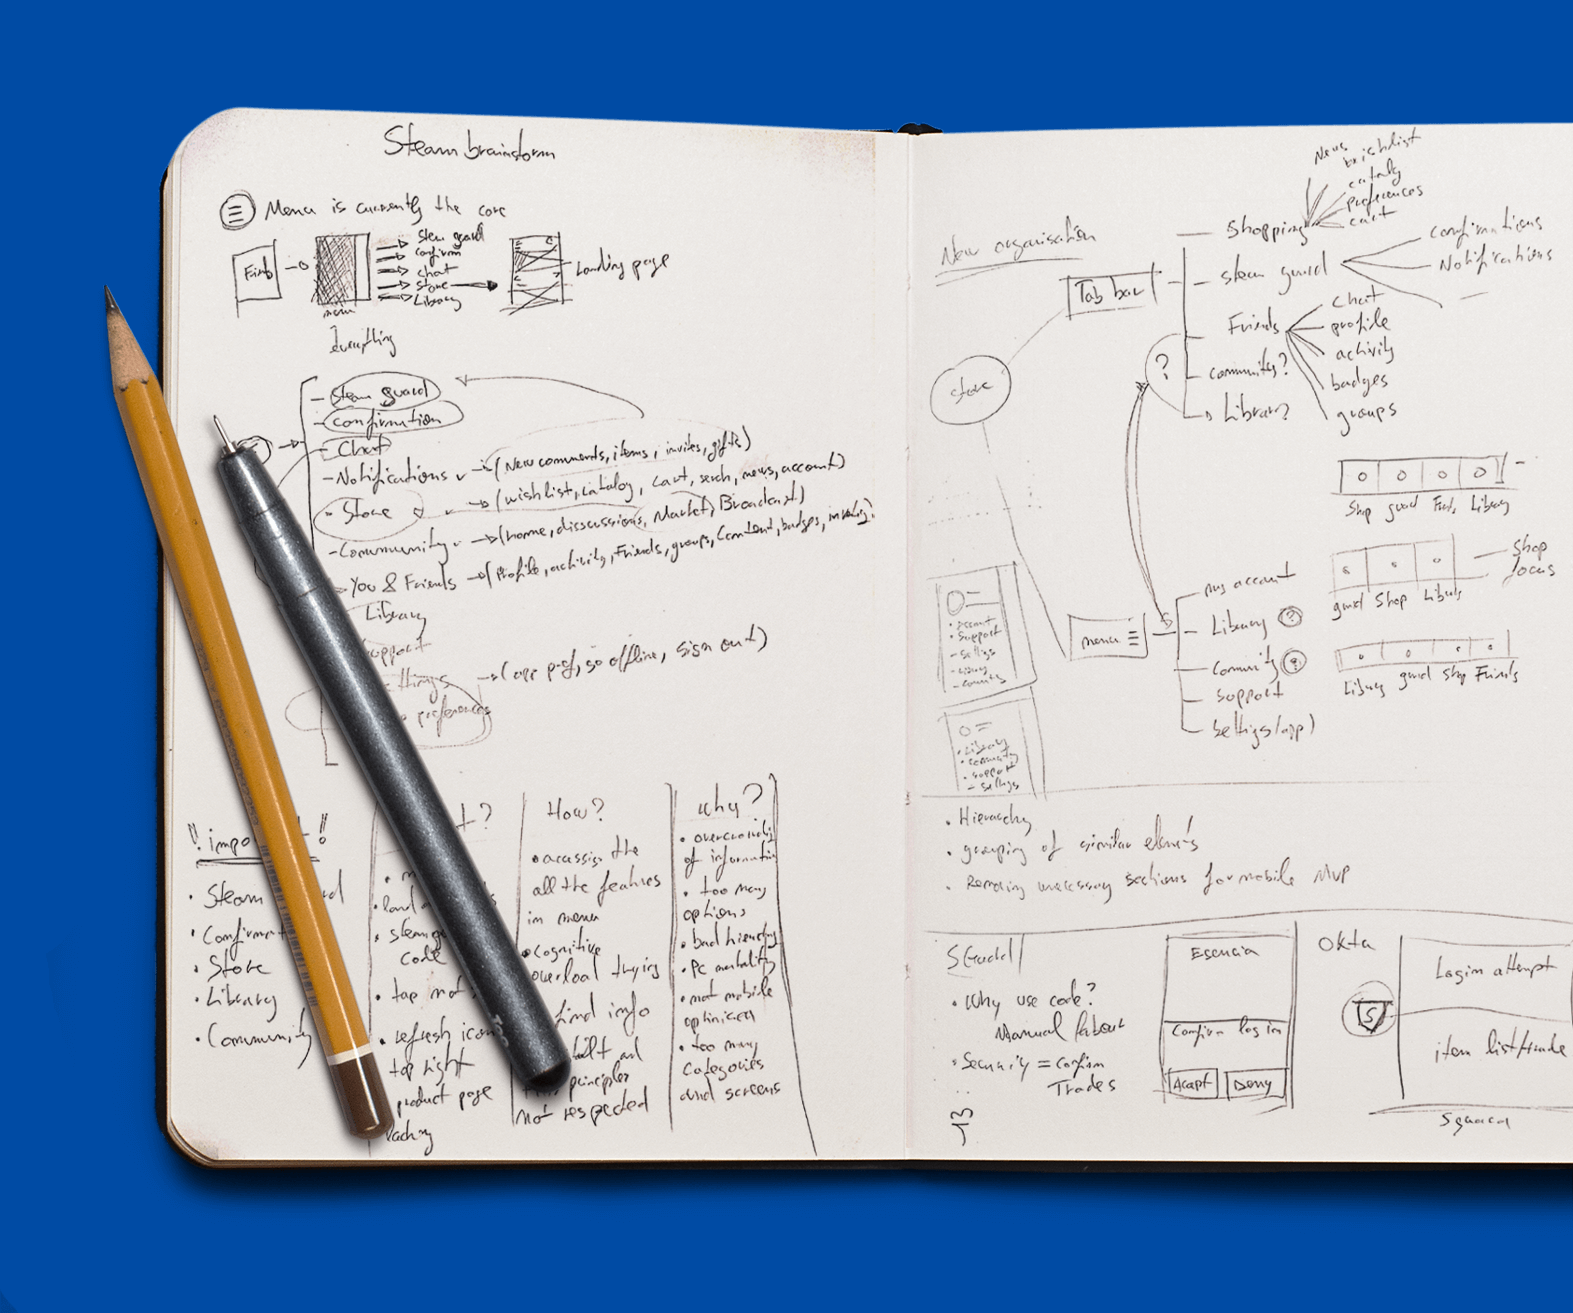 Steam brainstorm
Menu is currently the core
Steam guard
confirm
chat
store
Library
menu
Landing page
Everything
- Steam guard
- confirmation
- Chat
- Notifications → (New comments, items, invites, gifts)
- Store → (wishlist, catalog, cart, serch, news, account)
- Community → (home, disscussions, Market, Broadcast)
- You & Friends → (Profile, activity, Friends, groups, Content, badges,
Library
support
→ (app pref, go offline, sign out)
preferences
!! impo t !!
• Steam
• Confirmat
• Store
• Library
• Community
t?
code
• tap not
• refresh icon
top right
product page
How?
• acassign the
all the features
in menu
• cognitive
overload trying
find info
principles
not respected
Why?
of information
• too many
options
• bad hierarchy
• PC mentality
• not mobile
• too many
categories
and screens
New organisation
Tab bar
Store
Shopping
News
wishlist
catalog
preferences
cart
steam guard
confirmations
Notifications
Friends
chat
profile
activity
badges
groups
community?
Library?
?
Shop guard Friends Library
guard Shop Library
Shop
focus
Library guard Shop Friends
menu
my account
Library ?
Community ?
support
settings (app)
• Account
• Support
- settings
- Library
- community
• Library
• community
• support
- settings
• Hierarchy
• grouping of similar elements
• Removing unecessary sections for mobile MVP
• Why use code?
Manual labour
• Security = confirm
Trades
Esencia
Confirm log in
Acept
Deny
Okta
S
Login attempt
item list/trade